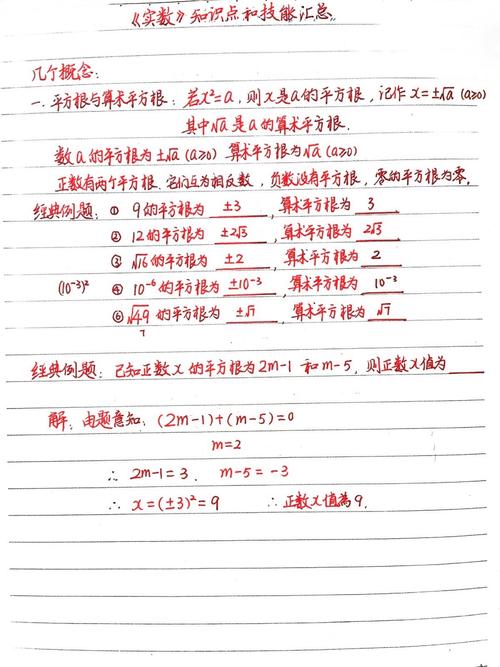 《实数》知识点和技能汇总。
几个概念:
一.平方根与算术平方根:若x²=a,则x是a的平方根,记作x=±√a (a≥0)
其中√a是a的算术平方根.
数a的平方根为±√a (a≥0) 算术平方根为√a (a≥0)
正数有两个平方根.它们互为相反数,负数没有平方根,零的平方根为零.
经典例题: ① 9的平方根为 ±3 ,算术平方根为 3
② 12的平方根为 ±2√3 ,算术平方根为 2√3
③ √16的平方根为 ±2 ,算术平方根为 2
(10⁻³)² ④ 10⁻⁶的平方根为 ±10⁻³ ,算术平方根为 10⁻³
⑤ √49 的平方根为 ±√7 ,算术平方根为 √7
7
经典例题:已知正数x的平方根为2m-1 和m-5,则正数x值为____
解:由题意知:(2m-1)+(m-5)=0
m=2
∴ 2m-1=3. m-5=-3
∴ x=(±3)²=9 ∴正数x值為9.